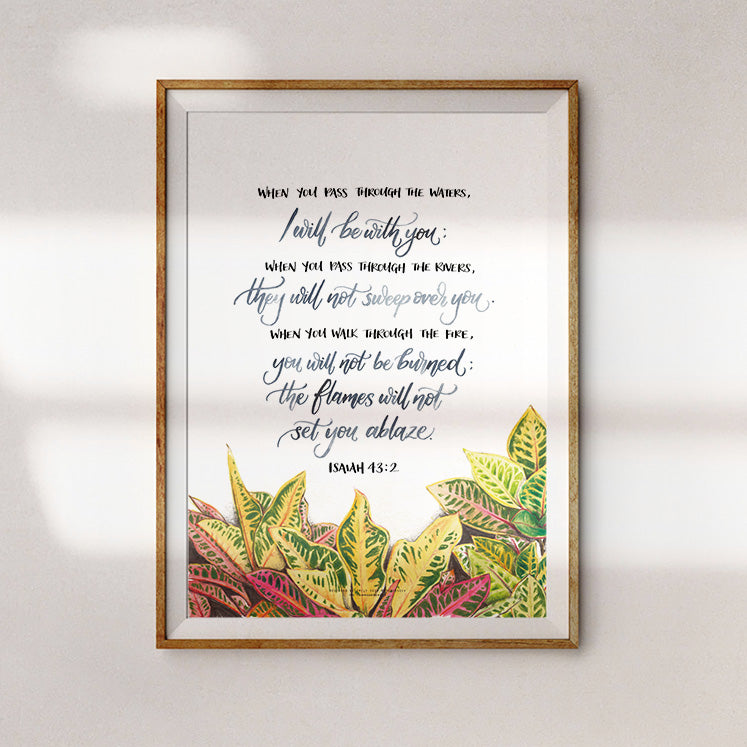 WHEN YOU PASS THROUGH THE WATERS,
I will be with you;
WHEN YOU PASS THROUGH THE RIVERS,
they will not sweep over you.
WHEN YOU WALK THROUGH THE FIRE,
you will not be burned;
the flames will not
set you ablaze.
ISAIAH 43:2